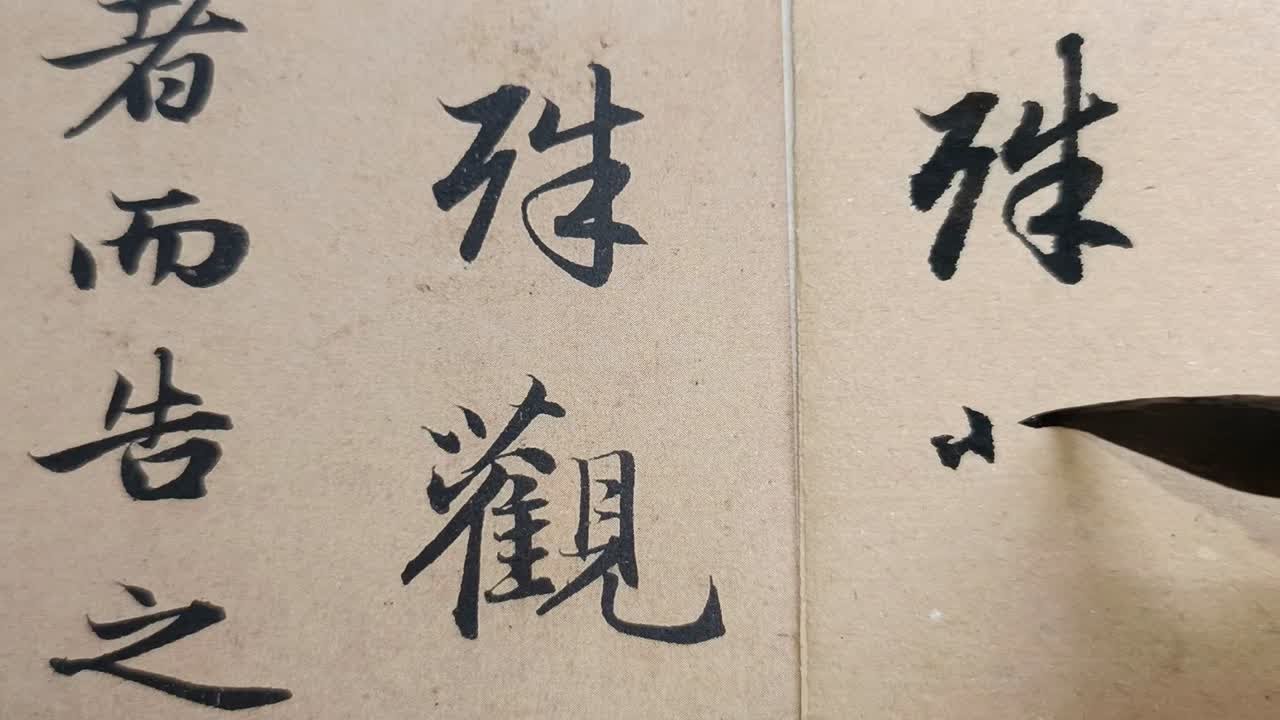 殊
殊觀
者而告之